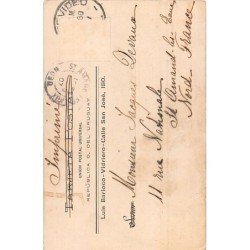 VIDEO
Imprimé
TARJETA POSTAL
UNION POSTAL UNIVERSAL
REPÚBLICA O. DEL URUGUAY
Luis Buttons-Vidriero-Calle San José, 150.
Monsieur Jacques Devaux
11 rue Nationale
St Amand-les-Eaux
Nord France